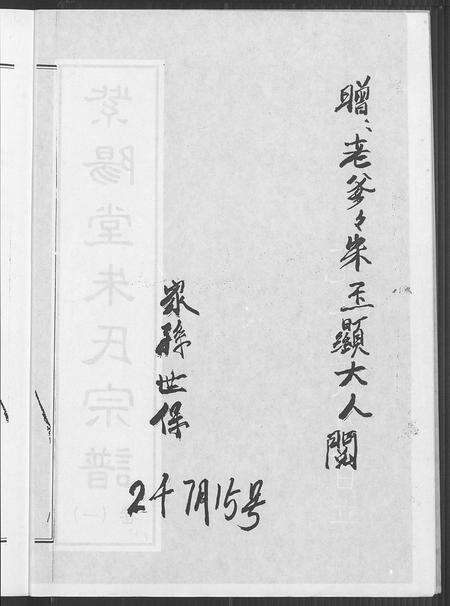 贈：老爹々朱丕顯大人閱
家孫世保
2千7月15号
紫陽堂朱氏宗譜
(一)